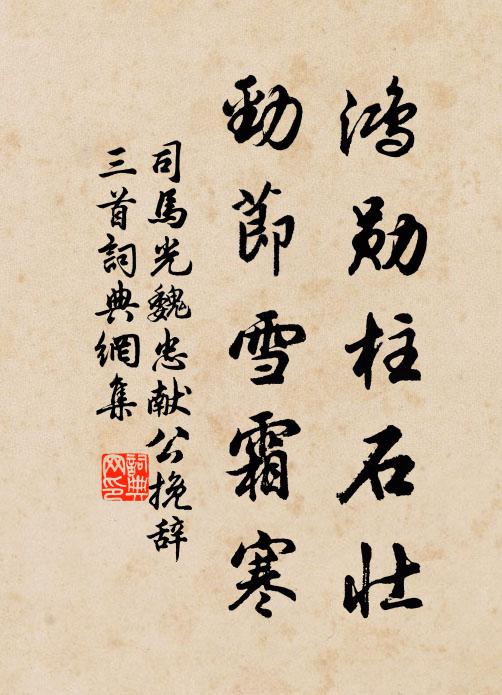 鴻勛柱石壯
勁節雪霜寒
司馬光魏忠献公挽辞
三首詞典網集
詞典网印